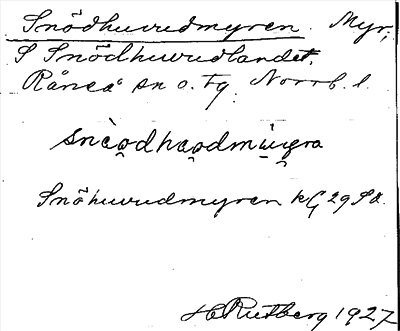 Snödhuvudmyren. Myr,
S Snödhuvudlandet.
Råneå sn o. tg. Norrb. l.
Snöhuvudmyren kG 29 SO.
H. Rutberg 1927